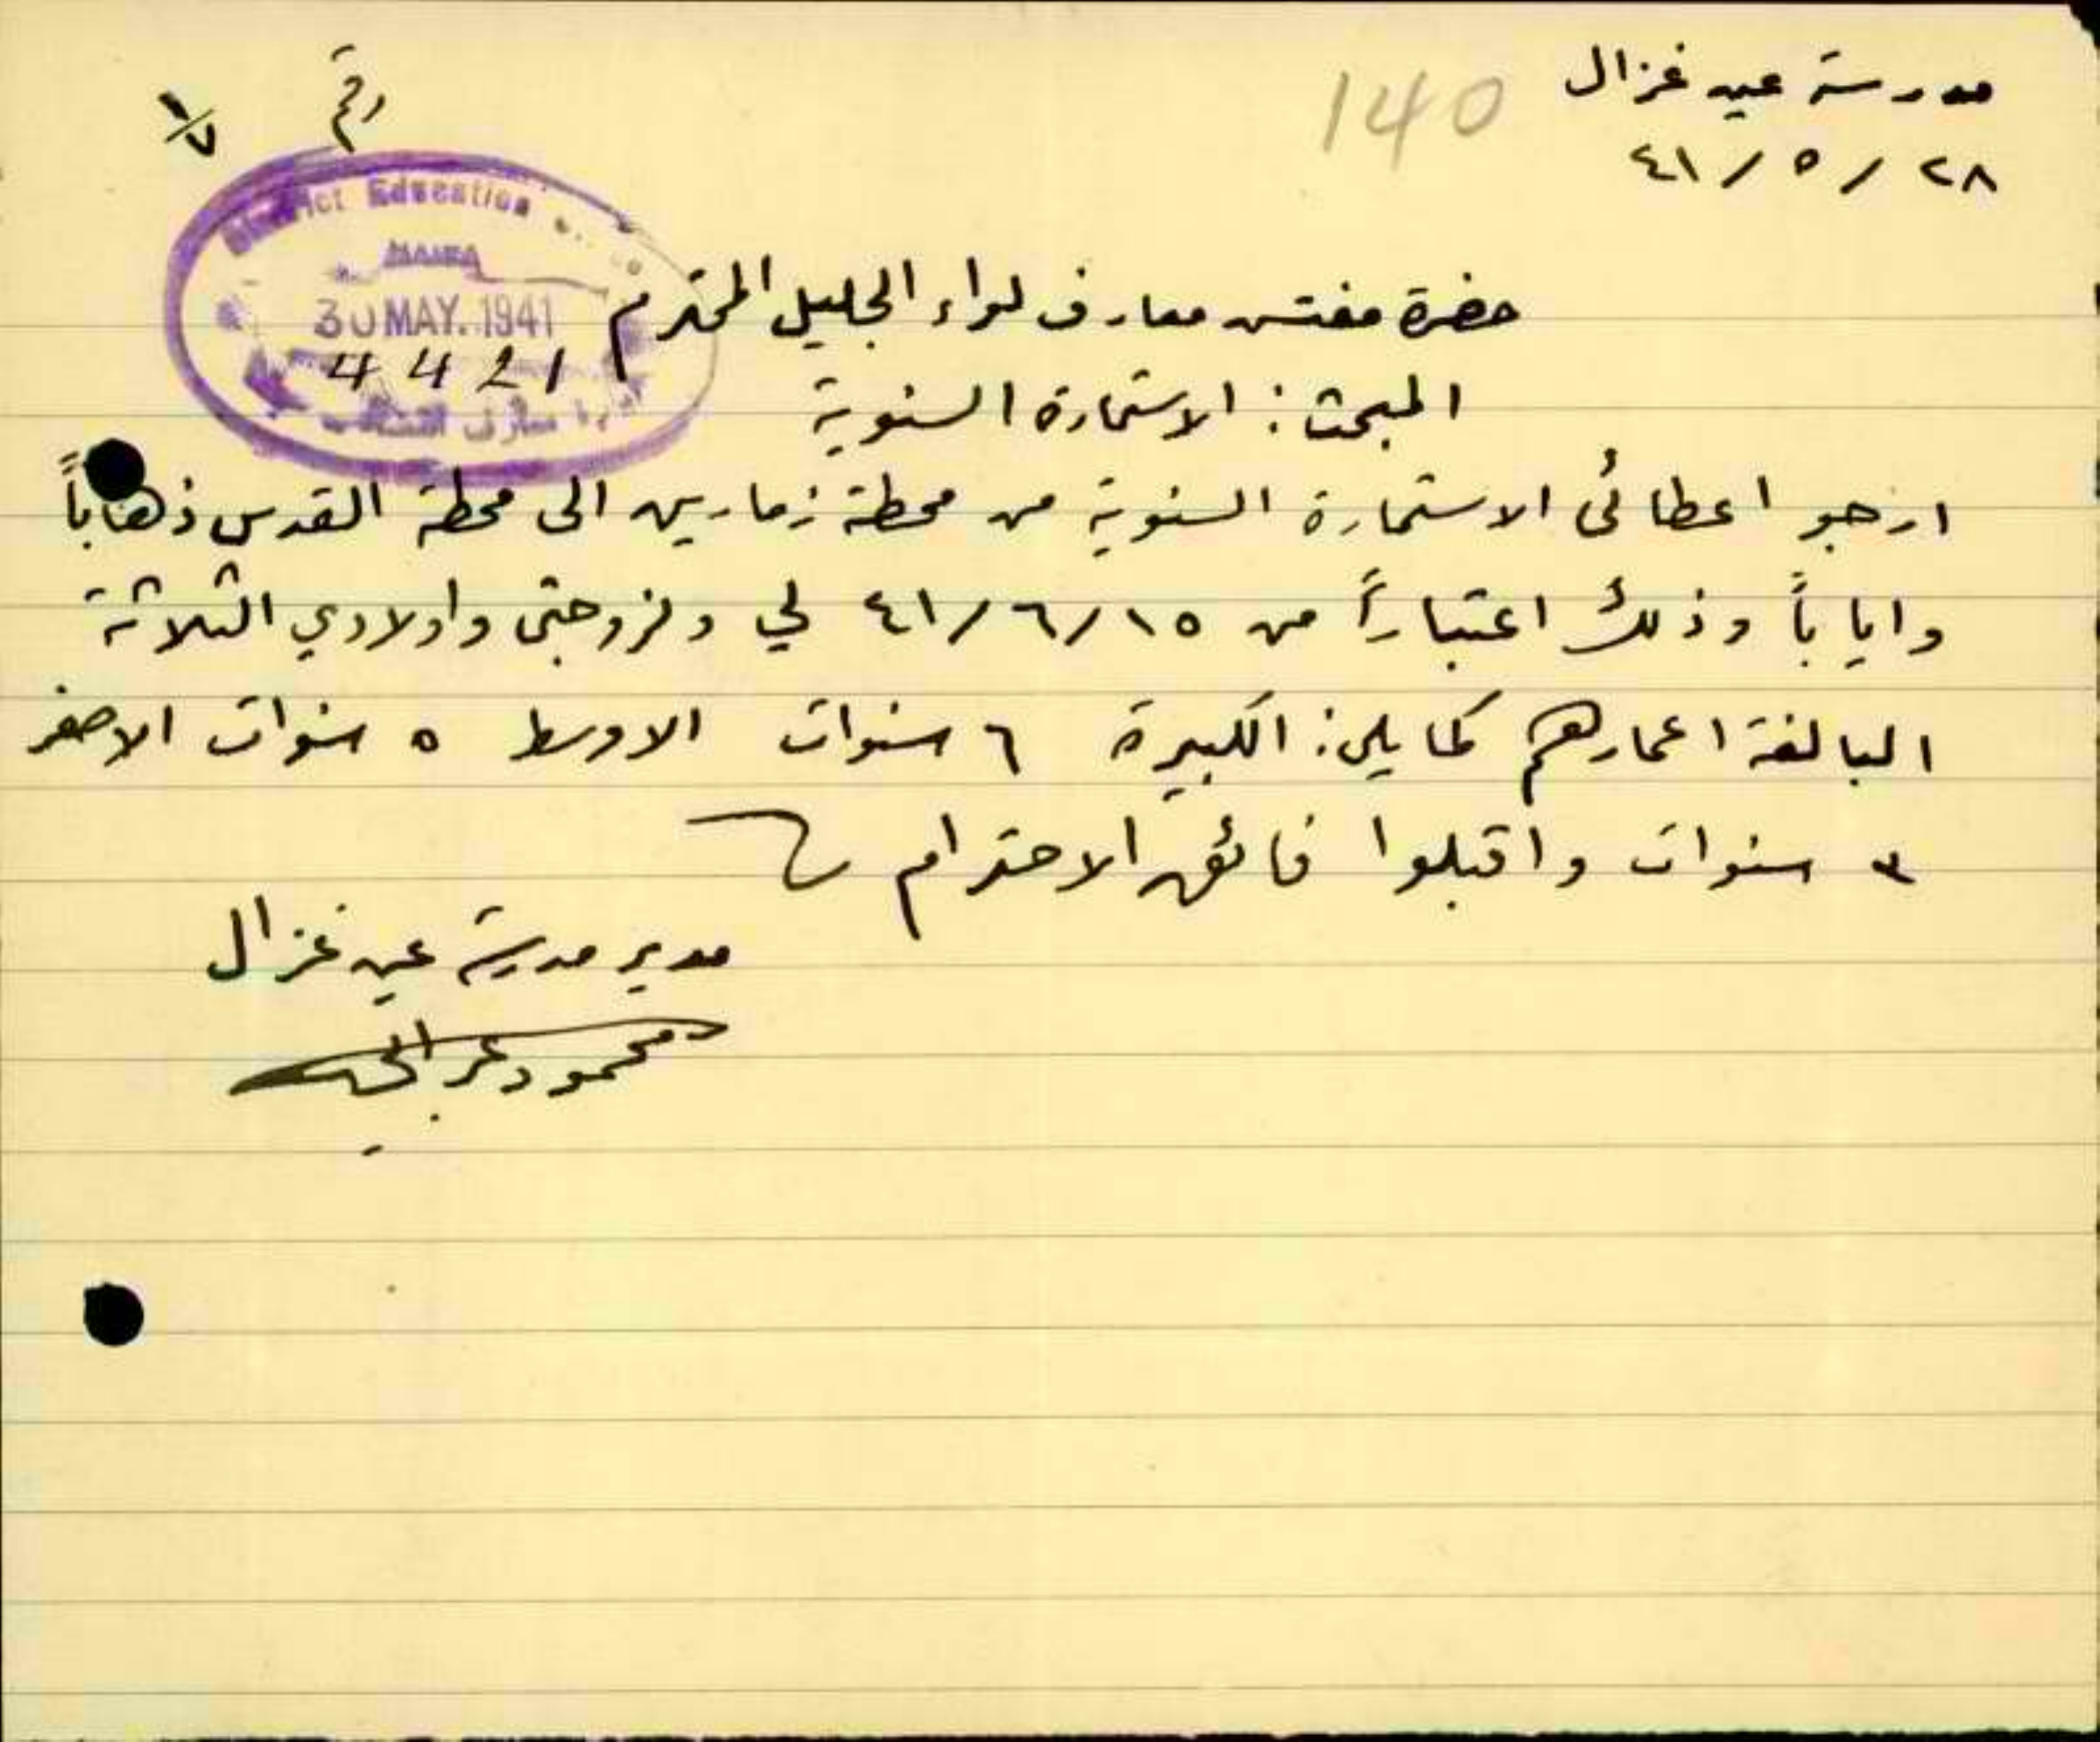 مدرسة عين غزال
140
٢٨ / ٥ / ٤١
رقم
District Education
HAIFA
30 MAY. 1941
4421
حضرة مفتش معارف لواء الجليل المحترم
المبحث : الاستمارة السنوية
ارجو اعطائى الاستمارة السنوية من محطة زمارين الى محطة القدس ذهاباً
واياباً وذلك اعتباراً من ١٥/٦/٤١ لي ولزوجتى واولادي الثلاثة
البالغة اعمارهم كما يلي : الكبيرة ٦ سنوات الاوسط ٥ سنوات الاصغر
٣ سنوات واقبلوا فائق الاحترام
مدير مدرسة عين غزال
محمود